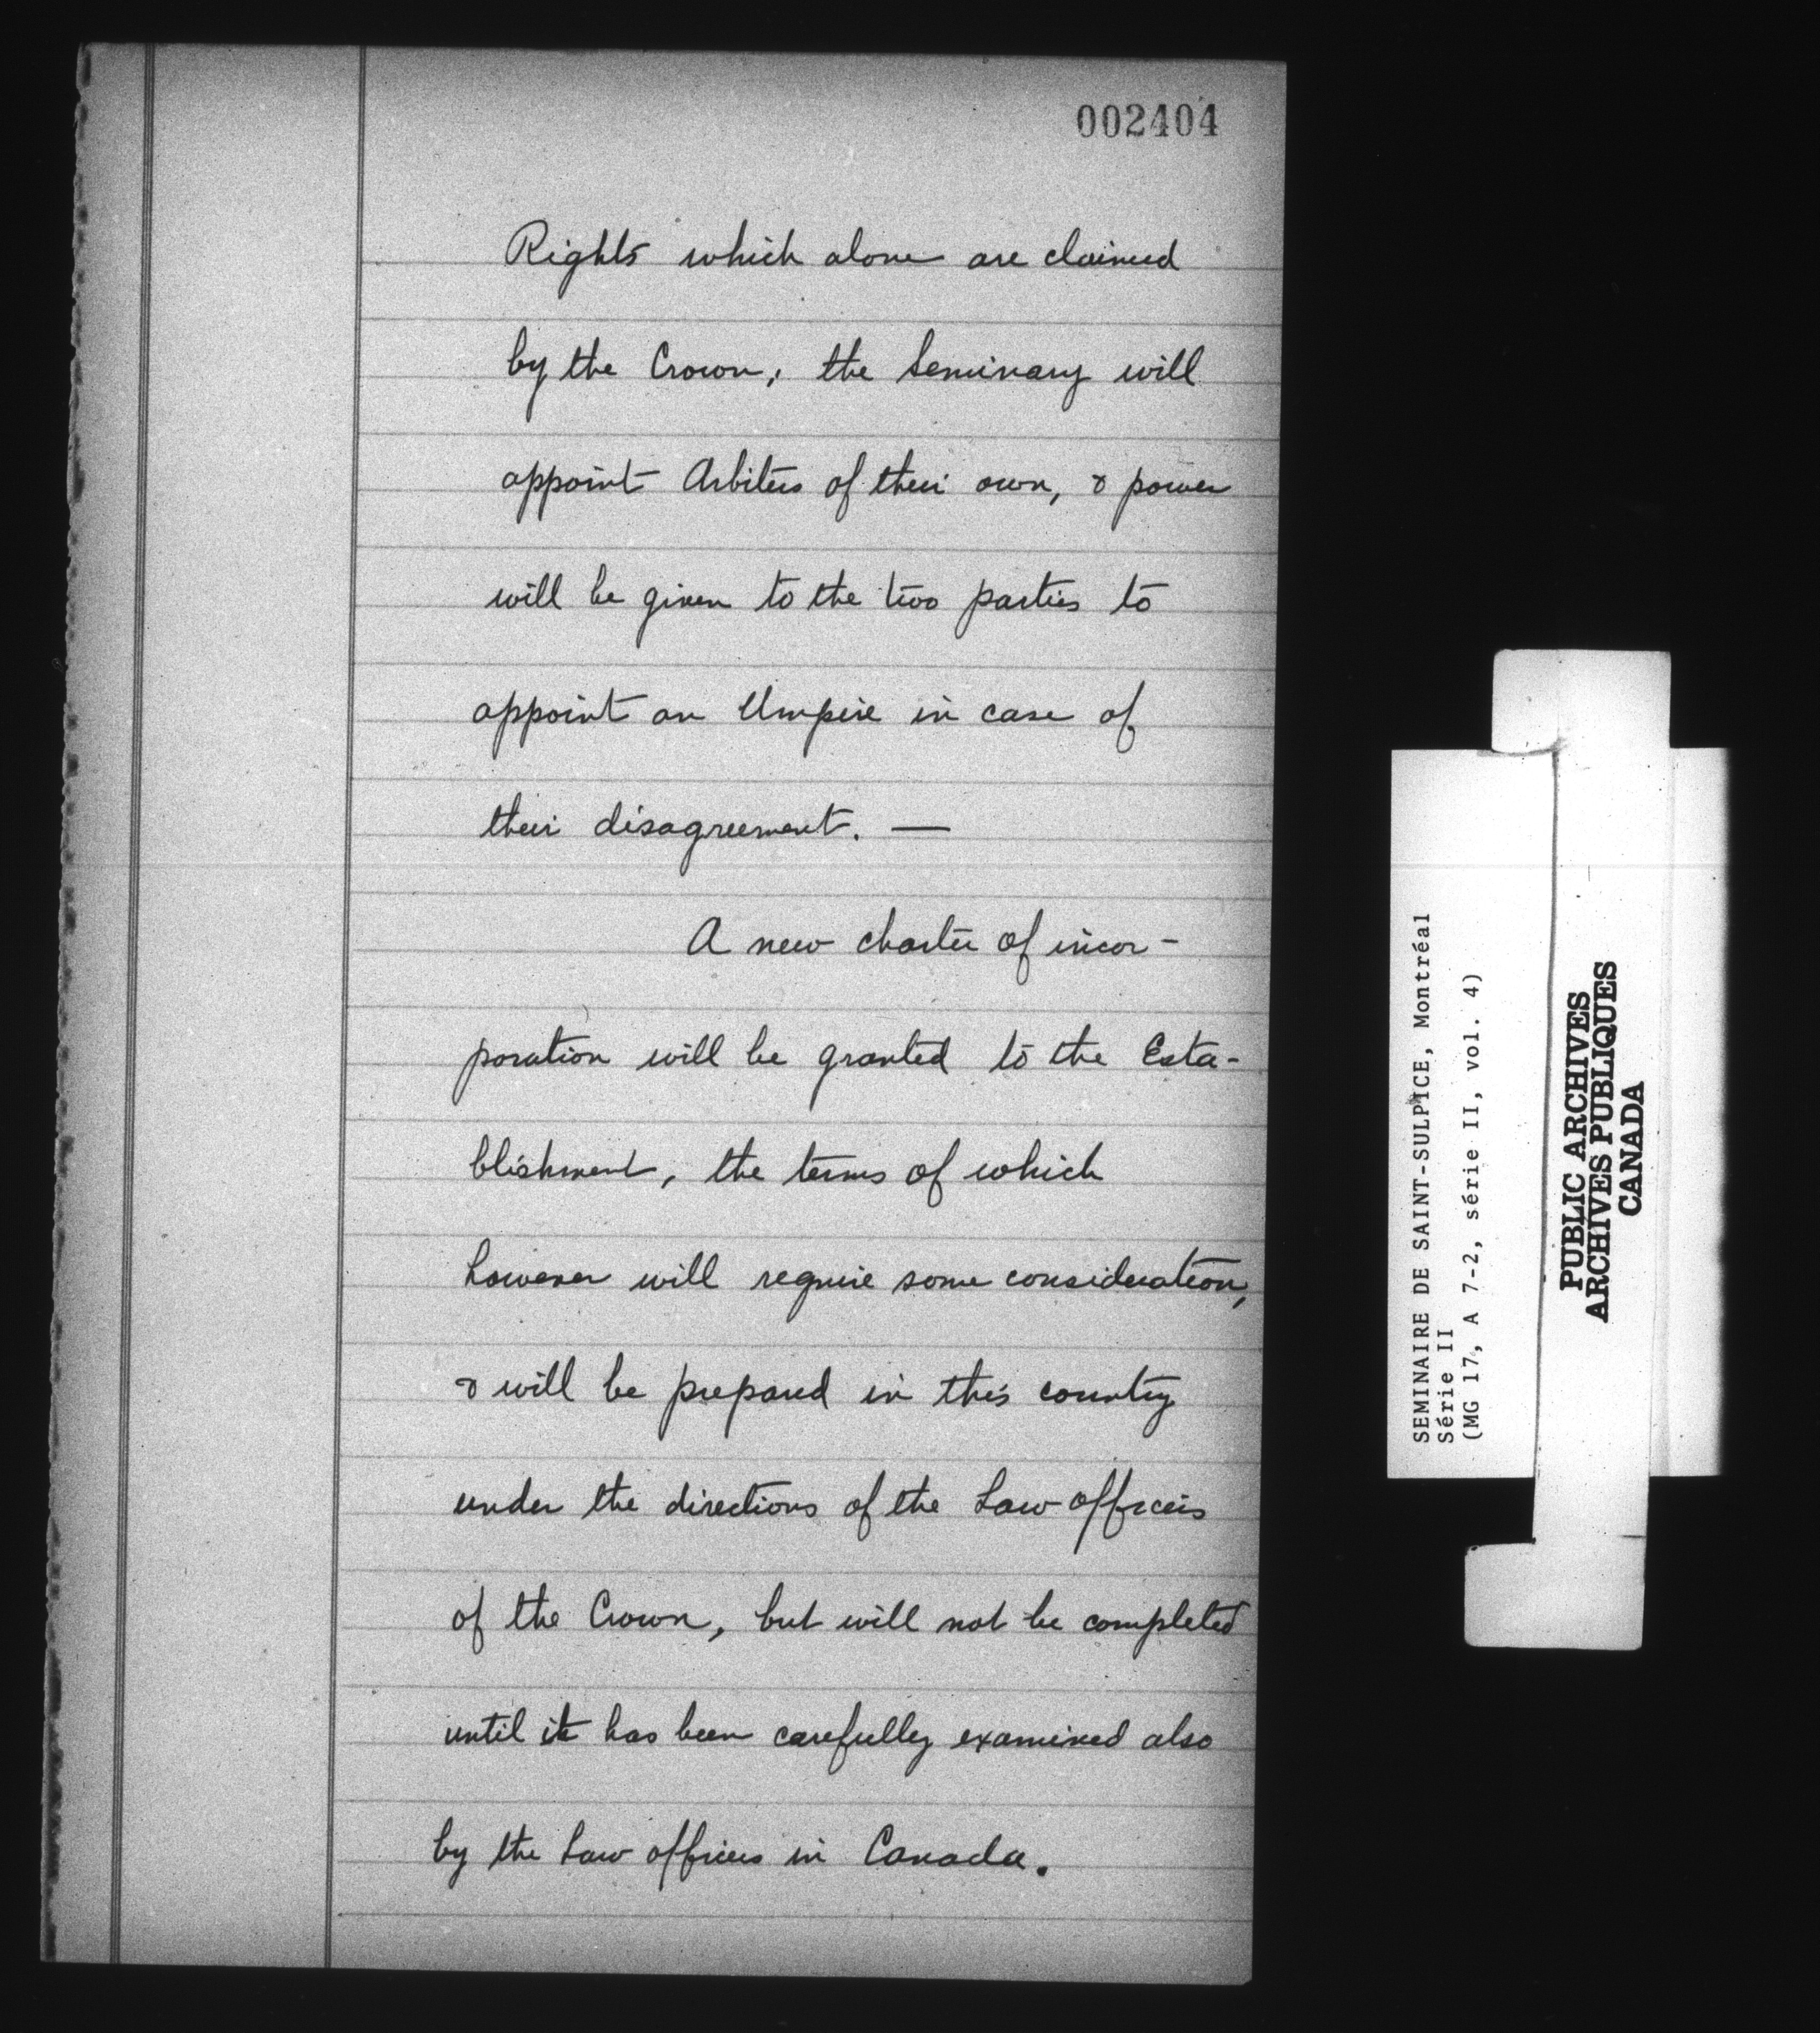 002404
Rights which alone are claimed
by the Crown; the Seminary will
appoint Arbiters of their own, & power
will be given to the two parties to
appoint an Umpire in case of
their disagreement. —
A new charter of incor-
poration will be granted to the Esta-
blishment, the terms of which
however will require some consideration,
& will be prepared in this country
under the directions of the Law officers
of the Crown, but will not be completed
until it has been carefully examined also
by the Law officers in Canada.
SEMINAIRE DE SAINT-SULPICE, Montréal
Série II
(MG 17, A 7-2, série II, vol. 4)
PUBLIC ARCHIVES
ARCHIVES PUBLIQUES
CANADA